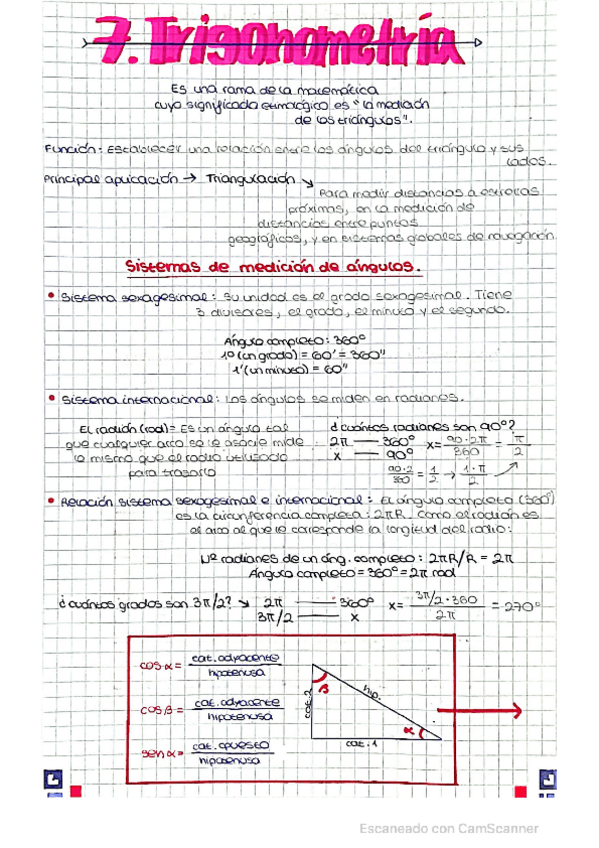 7. Trigonometría
Es una rama de la matemática
cuyo significado etimológico es "la medición
de los triángulos".
Función: Establecer una relación entre los ángulos del triángulo y sus
lados.
Principal aplicación → Triangulación ↘
Para medir distancias a estrellas
próximas, en la medición de
distancias entre puntos
geográficos, y en sistemas globales de navegación
Sistemas de medición de ángulos.
• Sistema sexagesimal: su unidad es el grado sexagesimal. Tiene
3 divisores, el grado, el minuto y el segundo.
Ángulo completo: 360º
1º (un grado) = 60' = 360''
1' (un minuto) = 60''
• Sistema internacional: Los ángulos se miden en radianes.
El radián (rad) = Es un ángulo tal
que cualquier arco se le asocie mide
lo mismo que el radio utilizado
para trazarlo
¿cuántos radianes son 90º?
2π — 360º x = 90·2π / 360 = π / 2
x — 90º
90·2 / 360 = 1 / 2 → 1·π / 2
• Relación sistema sexagesimal e internacional: El ángulo completo (360º)
es la circunferencia completa: 2πR. Como el radián es
el arco al que le corresponde la longitud del radio:
Nº radianes de un áng. completo: 2πR/R = 2π
Ángulo completo = 360º = 2π rad
¿cuántos grados son 3π/2? ↘ 2π — 360º x = 3π/2·360 / 2π = 270º
3π/2 — x
cos α = cat. adyacente / hipotenusa
cos β = cat. adyacente / hipotenusa
sen α = cat. opuesto / hipotenusa
β
hip.
cat. 2
α
cat. 1
Escaneado con CamScanner